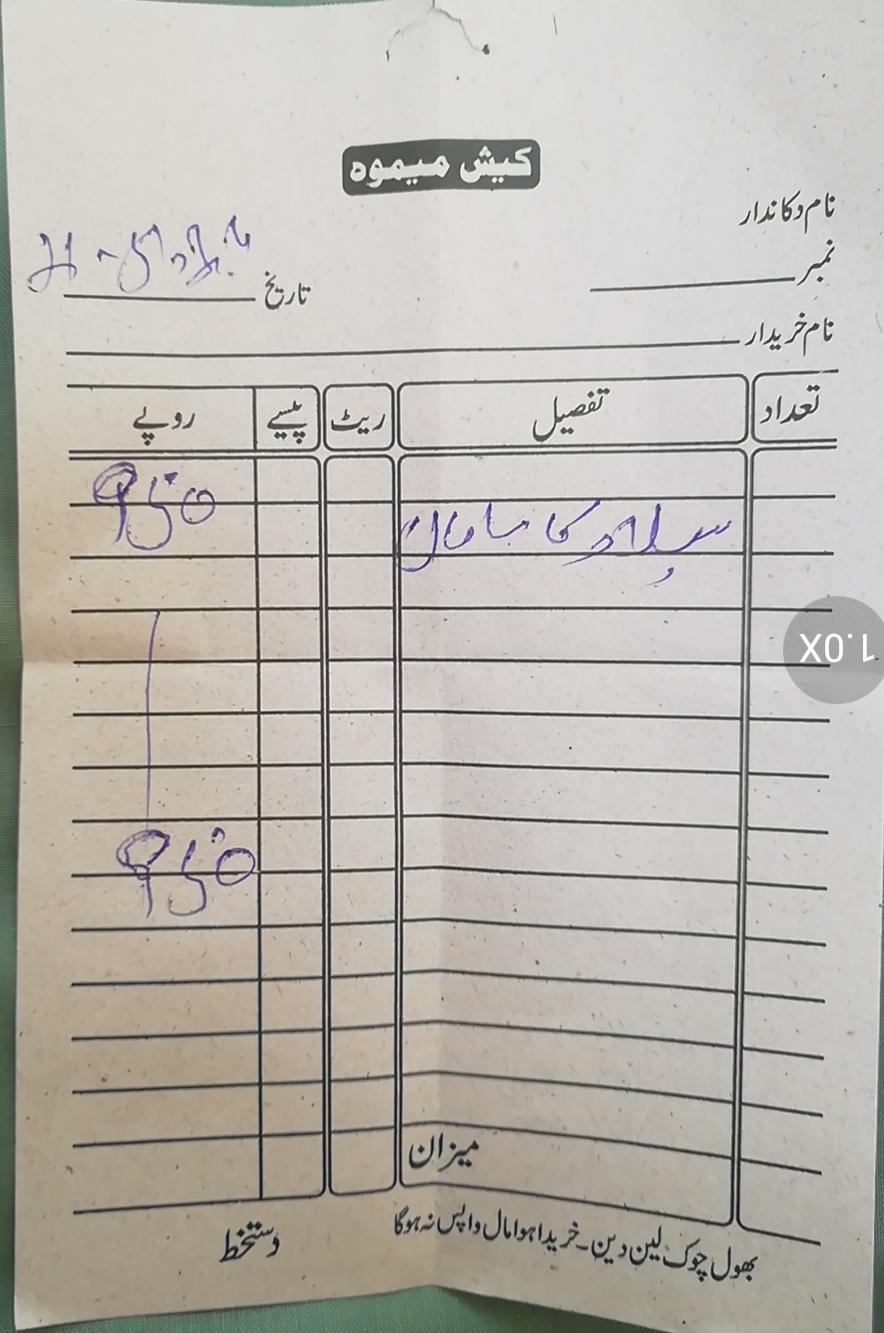 کیش میموہ
نام دکاندار
نمبر
تاریخ
نام خریدار
تعداد تفصیل ریٹ پیسے روپے
950
کا سامان
950
میزان
بھول چوک لین دین۔ خریدا ہوا مال واپس نہ ہوگا
دستخط
1.0X